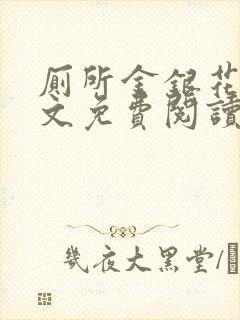 厠所金銀花
文免費閱讀
幾夜大黑堂/